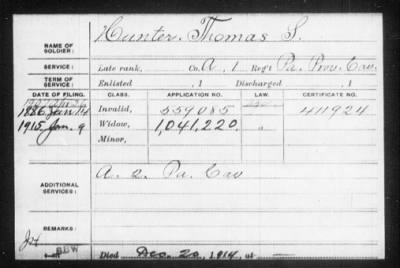 NAME OF SOLDIER: Hunter, Thomas S.
SERVICE: Late rank, Co. A, 1 Reg't Pa. Prov. Cav.
TERM OF SERVICE: Enlisted , 1 Discharged , 1
DATE OF FILING. CLASS. APPLICATION NO. LAW. CERTIFICATE NO.
1886 Jan 14 Invalid, 559085 411924
1915 Jan. 9 Widow, 1,041,220 "
Minor,
ADDITIONAL SERVICES: A. 2. Pa. Cav
REMARKS:
BBW
Died Dec. 20, 1914, at —